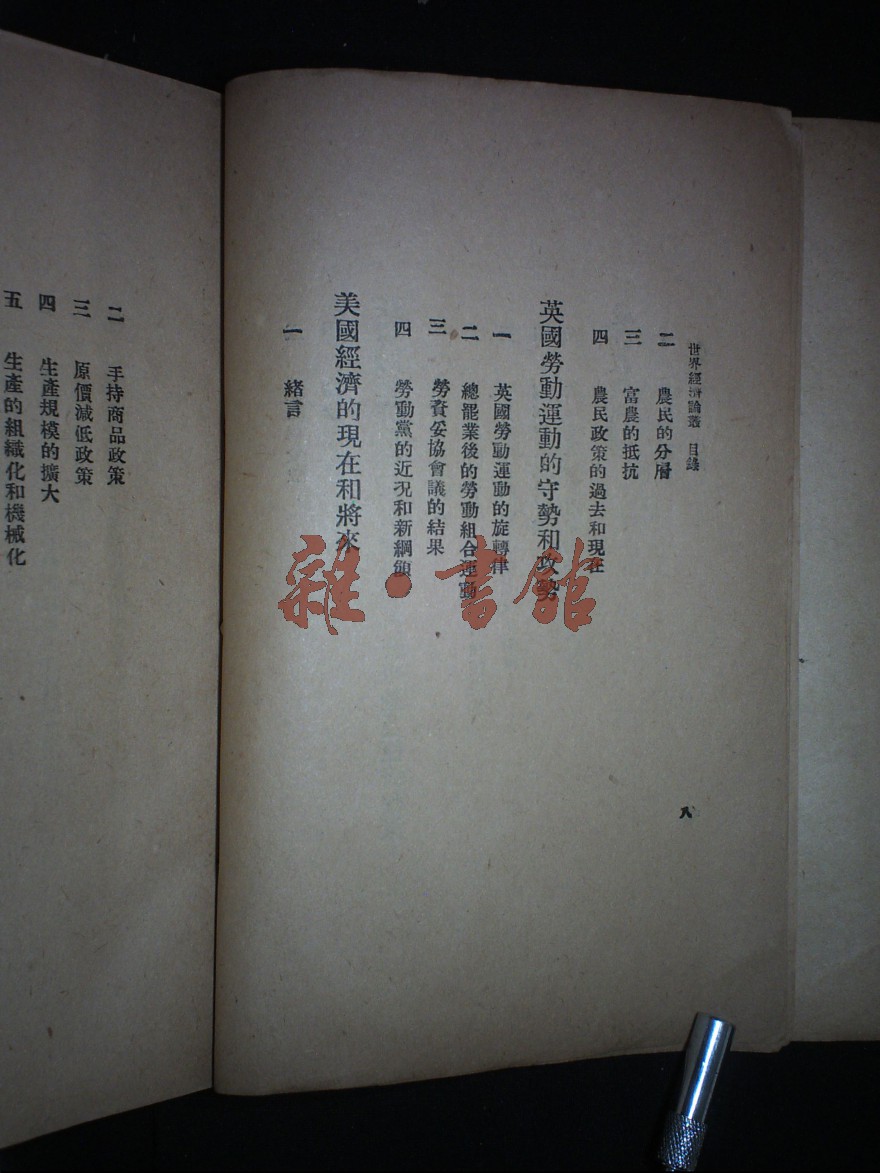 世界經濟論叢　目錄
二　農民的分層
三　富農的抵抗
四　農民政策的過去和現在
英國勞動運動的守勢和攻勢
一　英國勞動運動的旋轉律
二　總罷業後的勞動組合運動
三　勞資妥協會議的結果
四　勞動黨的近況和新綱領
美國經濟的現在和將來
一　緒言
八
二　手持商品政策
三　原價減低政策
四　生產規模的擴大
五　生產的組織化和機械化
雜·書館